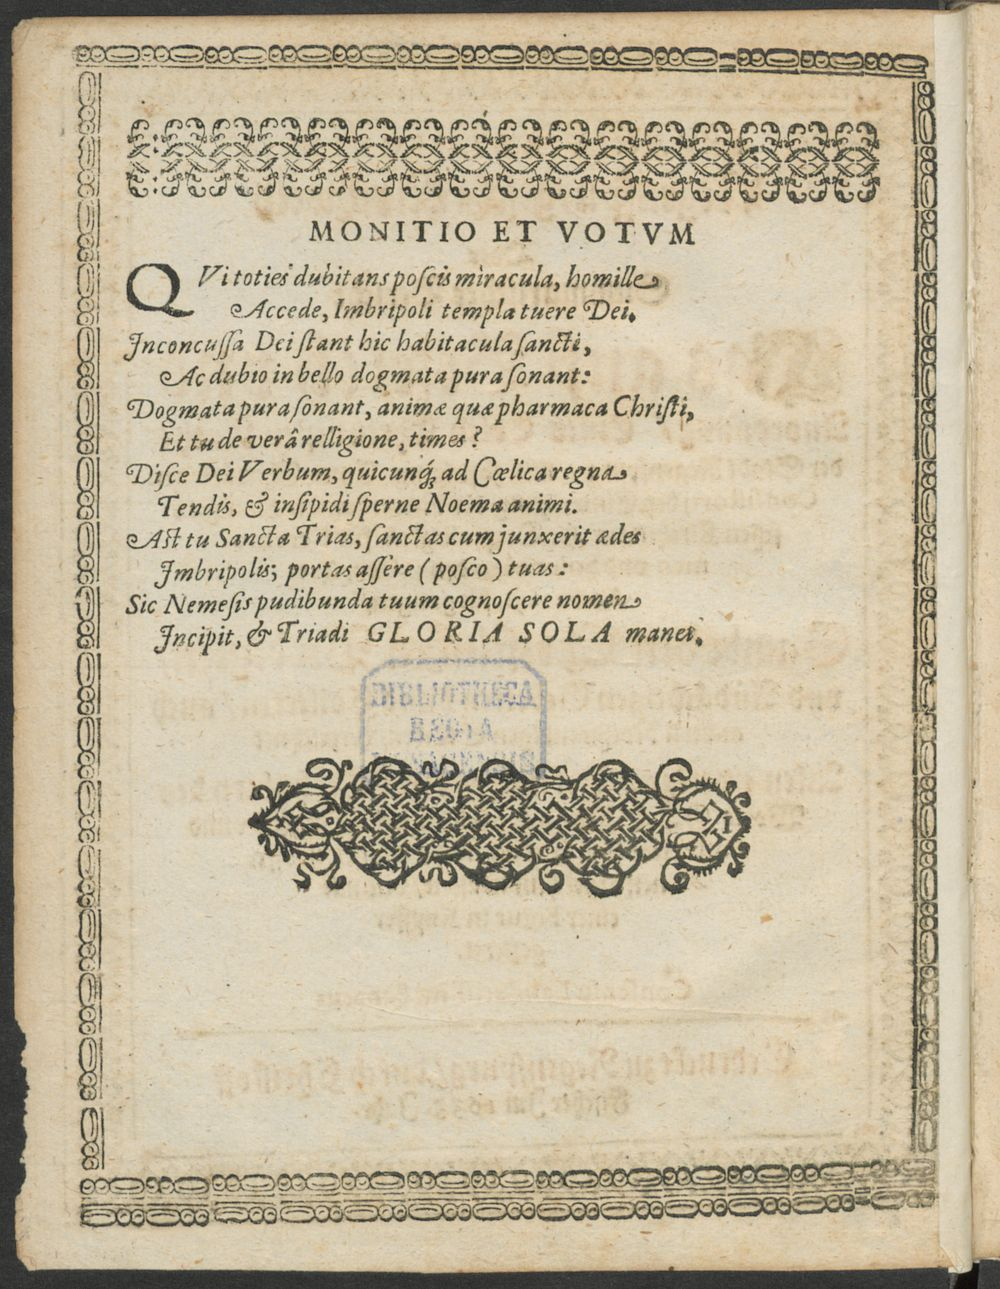 MONITIO ET VOTVM
QVi toties dubitans poſcis miracula, homille
Accede, Imbripoli templa tuere Dei.
Inconcuſſa Dei ſtant hic habitacula ſancti,
Ac dubio in bello dogmata pura ſonant:
Dogmata pura ſonant, animæ quæ pharmaca Chriſti,
Et tu de verâ relligione, times?
Diſce Dei Verbum, quicunq́ꝫ ad Cœlica regna
Tendis, & inſipidi ſperne Noema animi.
Aſt tu Sancta Trias, ſanctas cum junxerit ædes
Imbripolis; portas aſſere (poſco) tuas:
Sic Nemeſis pudibunda tuum cognoſcere nomen
Incipit, & Triadi GLORIA SOLA manet.
BIBLIOTHECA
REGIA